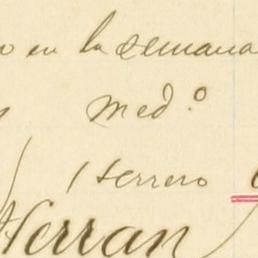 en la semana
med.º
1 herrero
Herran